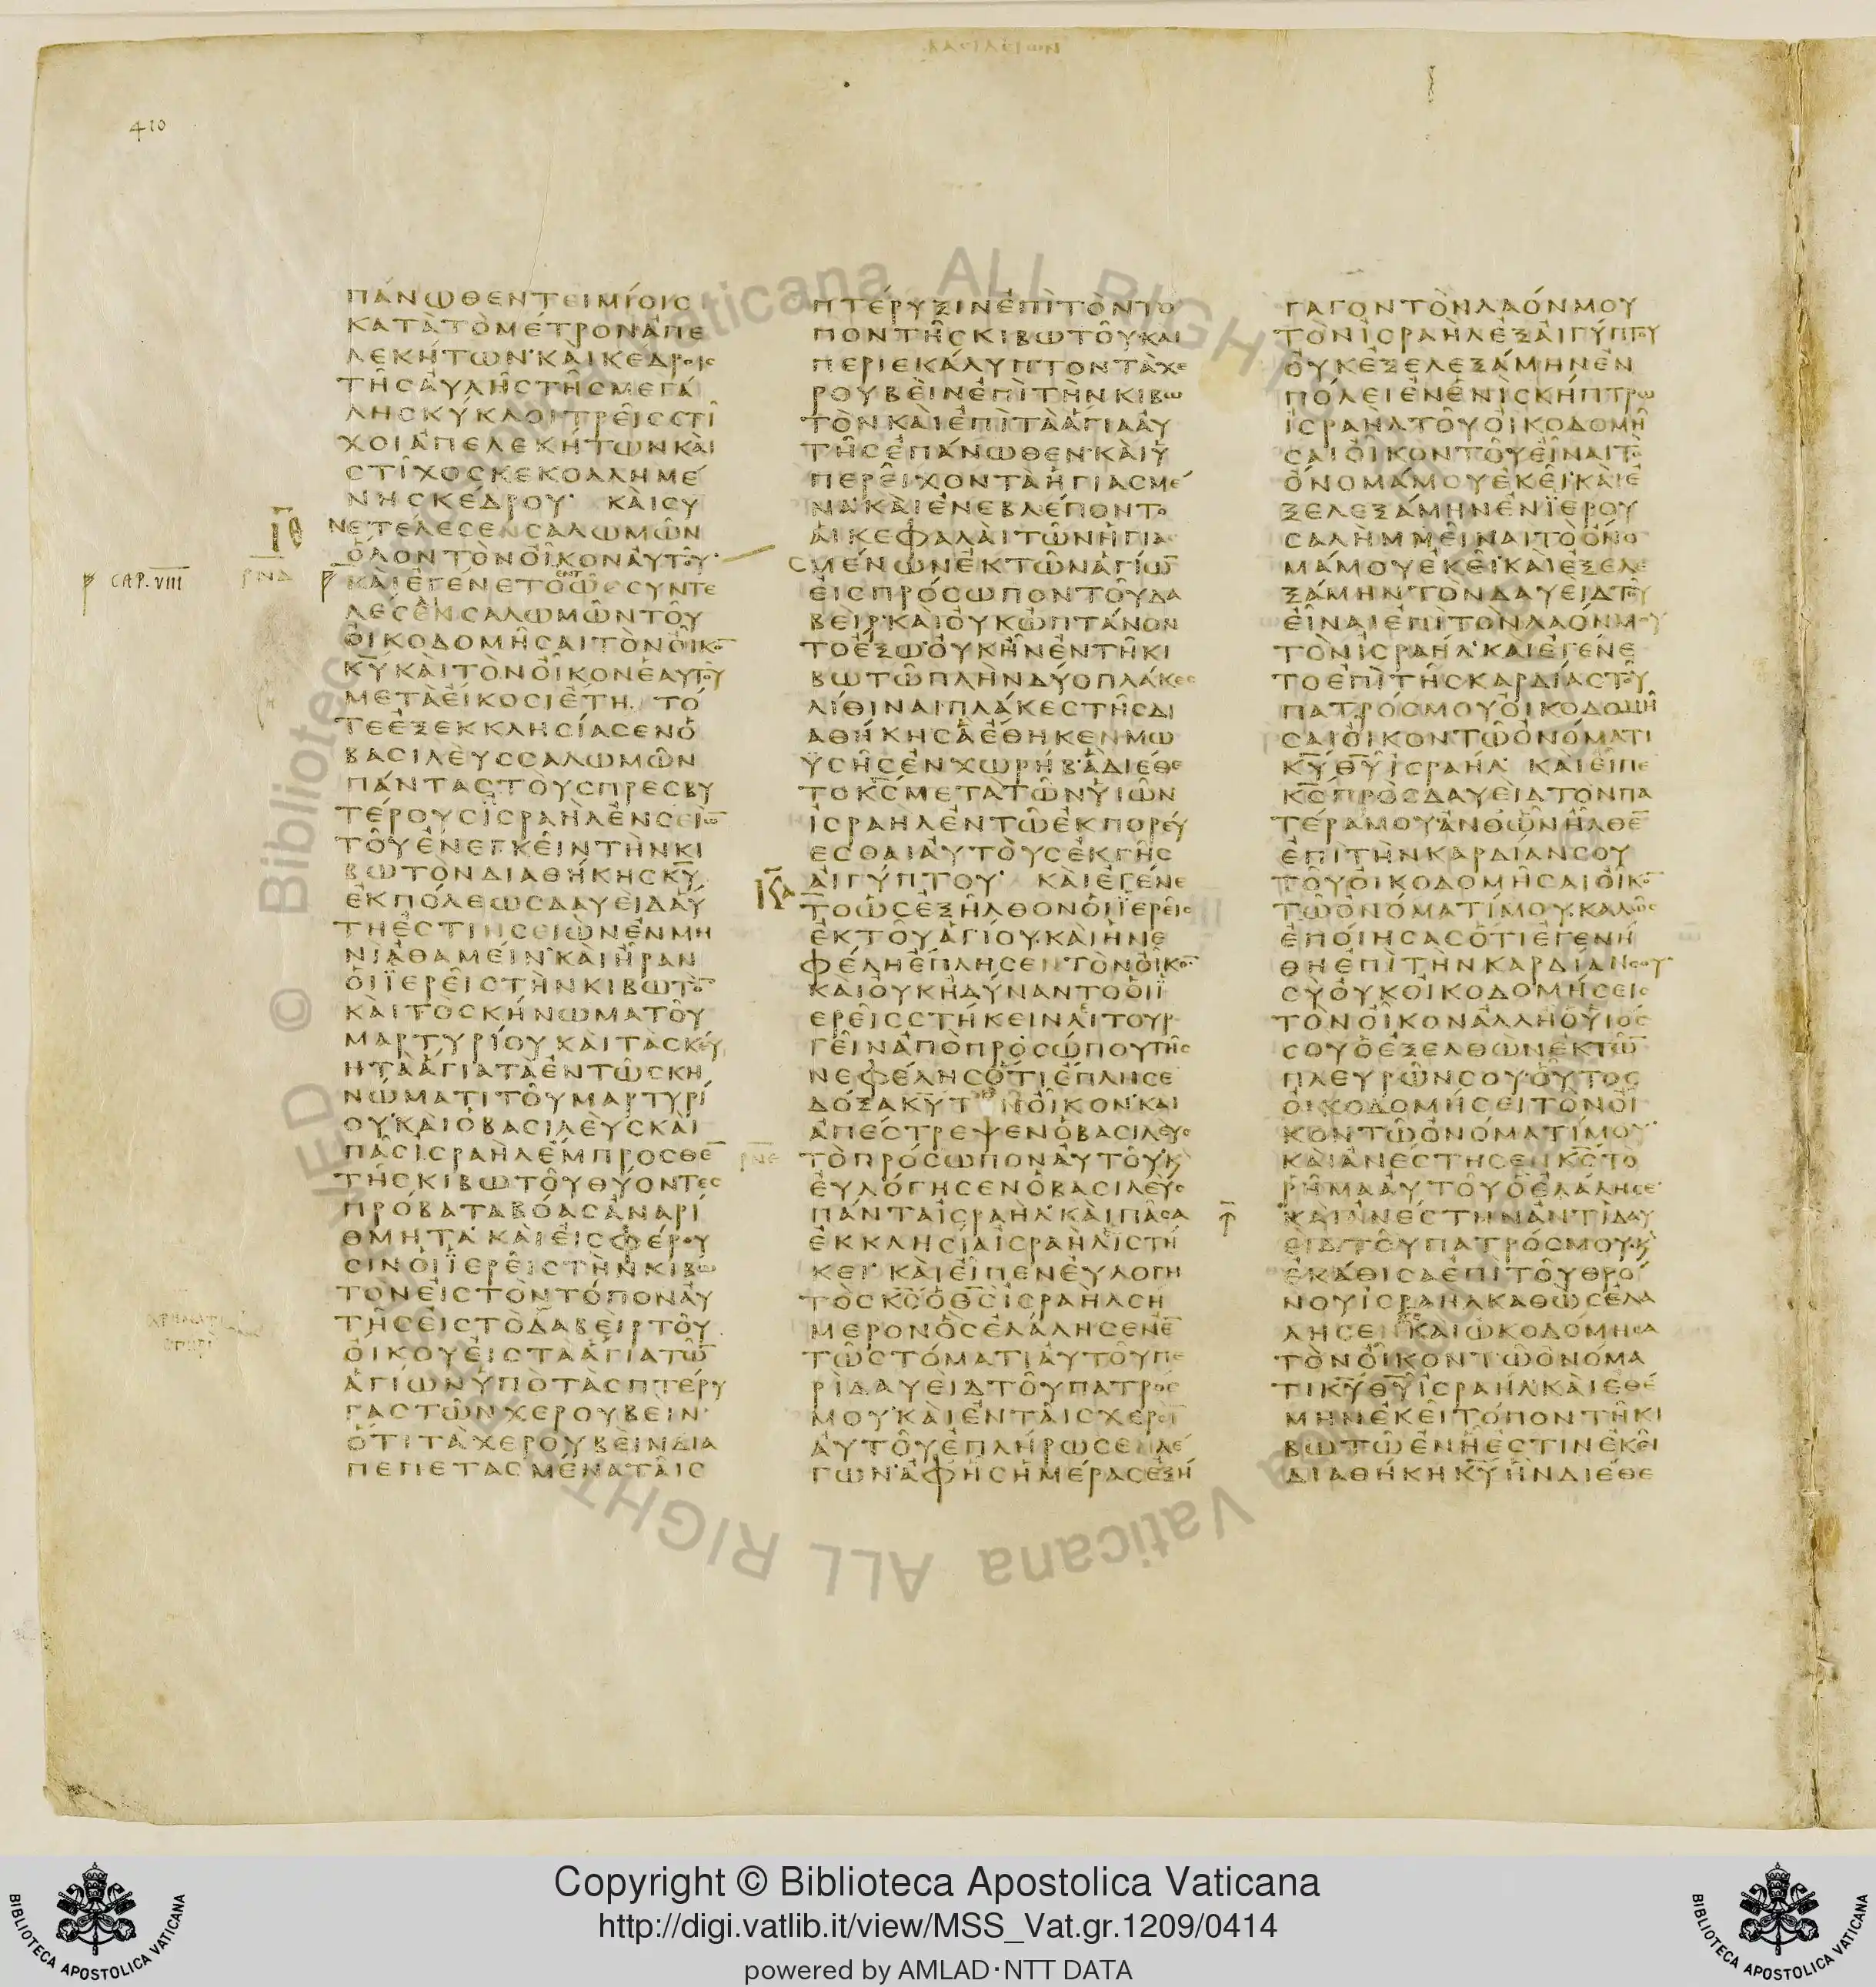 ΒΑΣΙΛΕΙΩΝ
410
ΠΑΝΩΘΕΝΤΕΙΜΙΟΙΣ
ΚΑΤΑΤΟΜΕΤΡΟΝΑΠΕ
ΛΕΚΗΤΩΝ·ΚΑΙΚΕΔΡΟΙΣ
ΤΗΣΑΥΛΗΣΤΗΣΜΕΓΑ
ΛΗΣΚΥΚΛΟΙΤΡΕΙΣΣΤΙ
ΧΟΙΑΠΕΛΕΚΗΤΩΝΚΑΙ
ΣΤΙΧΟΣΚΕΚΟΛΛΗΜΕ
ΝΗΣΚΕΔΡΟΥ· ΚΑΙΣΥ
ΝΕΤΕΛΕΣΕΝΣΑΛΩΜΩΝ
ΟΛΟΝΤΟΝΟΙΚΟΝΑΥΤΟΥ·
ΡΝΔ
CAP. VIII
ΚΑΙΕΓΕΝΕΤΟΩΣΣΥΝΤΕ
ΛΕΣΕΝΣΑΛΩΜΩΝΤΟΥ
ΟΙΚΟΔΟΜΗΣΑΙΤΟΝΟΙΚΟ̅
Κ̅Υ̅ΚΑΙΤΟΝΟΙΚΟΝΕΑΥΤΟΥ
ΜΕΤΑΕΙΚΟΣΙΕΤΗ· ΤΟ
ΤΕΕΞΕΚΚΛΗΣΙΑΣΕΝΟ
ΒΑΣΙΛΕΥΣΣΑΛΩΜΩΝ
ΠΑΝΤΑΣΤΟΥΣΠΡΕΣΒΥ
ΤΕΡΟΥΣΙΣΡΑΗΛΕΝΣΕΙΩ̅
ΤΟΥΕΝΕΓΚΕΙΝΤΗΝΚΙ
ΒΩΤΟΝΔΙΑΘΗΚΗΣΚ̅Υ̅
ΕΚΠΟΛΕΩΣΔΑΥΕΙΔΑΥ
ΤΗΕΣΤΙΝΣΕΙΩΝΕΝΜΗ
ΝΙΑΘΑΜΕΙΝ·ΚΑΙΗΡΑΝ
ΟΙΪΕΡΕΙΣΤΗΝΚΙΒΩΤΟ̅
ΚΑΙΤΟΣΚΗΝΩΜΑΤΟΥ
ΜΑΡΤΥΡΙΟΥΚΑΙΤΑΣΚΕΥ
ΗΤΑΑΓΙΑΤΑΕΝΤΩΣΚΗ
ΝΩΜΑΤΙΤΟΥΜΑΡΤΥΡΙ
ΟΥ·ΚΑΙΟΒΑΣΙΛΕΥΣΚΑΙ
ΠΑΣΙΣΡΑΗΛΕΜΠΡΟΣΘΕ̅
ΤΗΣΚΙΒΩΤΟΥΘΥΟΝΤΕΣ
ΠΡΟΒΑΤΑΒΟΑΣΑΝΑΡΙ
ΘΜΗΤΑ·ΚΑΙΕΙΣΦΕΡΟΥ
ΣΙΝΟΙΪΕΡΕΙΣΤΗΝΚΙΒΩ
ΤΟΝΕΙΣΤΟΝΤΟΠΟΝΑΥ
ΤΗΣΕΙΣΤΟΔΑΒΕΙΡΤΟΥ
ΟΙΚΟΥΕΙΣΤΑΑΓΙΑΤΩ̅
ΑΓΙΩΝΥΠΟΤΑΣΠΤΕΡΥ
ΓΑΣΤΩΝΧΕΡΟΥΒΕΙΝ·
ΟΤΙΤΑΧΕΡΟΥΒΕΙΝΔΙΑ
ΠΕΠΕΤΑΣΜΕΝΑΤΑΙΣ
ΠΤΕΡΥΞΙΝΕΠΙΤΟΝΤΟ
ΠΟΝΤΗΣΚΙΒΩΤΟΥΚΑΙ
ΠΕΡΙΕΚΑΛΥΠΤΟΝΤΑΧΕ
ΡΟΥΒΕΙΝΕΠΙΤΗΝΚΙΒΩ
ΤΟΝΚΑΙΕΠΙΤΑΑΓΙΑΑΥ
ΤΗΣΕΠΑΝΩΘΕΝ·ΚΑΙΥ
ΠΕΡΕΙΧΟΝΤΑΗΓΙΑΣΜΕ
ΝΑ·ΚΑΙΕΝΕΒΛΕΠΟΝΤΟ
ΑΙΚΕΦΑΛΑΙΤΩΝΗΓΙΑ
ΣΜΕΝΩΝΕΚΤΩΝΑΓΙΩ̅
ΕΙΣΠΡΟΣΩΠΟΝΤΟΥΔΑ
ΒΕΙΡ·ΚΑΙΟΥΚΩΠΤΑΝΟΝ
ΤΟΕΞΩ·ΟΥΚΗΝΕΝΤΗΚΙ
ΒΩΤΩΠΛΗΝΔΥΟΠΛΑΚΕΣ
ΛΙΘΙΝΑΙ·ΠΛΑΚΕΣΤΗΣΔΙ
ΑΘΗΚΗΣΑΕΘΗΚΕΝΜΩ
ΫΣΗΣΕΝΧΩΡΗΒ·ΑΔΙΕΘΕ
ΤΟΚ̅Σ̅ΜΕΤΑΤΩΝΥΙΩΝ
ΙΣΡΑΗΛΕΝΤΩΕΚΠΟΡΕΥ
ΕΣΘΑΙΑΥΤΟΥΣΕΚΓΗΣ
ΑΙΓΥΠΤΟΥ· ΚΑΙΕΓΕΝΕ
ΤΟΩΣΕΞΗΛΘΟΝΟΙΪΕΡΕΙΣ
ΕΚΤΟΥΑΓΙΟΥ·ΚΑΙΗΝΕ
ΦΕΛΗΕΠΛΗΣΕΝΤΟΝΟΙΚΟ̅
ΚΑΙΟΥΚΗΔΥΝΑΝΤΟΟΙΪ
ΕΡΕΙΣΣΤΗΚΕΙΝΛΙΤΟΥΡ
ΓΕΙΝΑΠΟΠΡΟΣΩΠΟΥΤΗΣ
ΝΕΦΕΛΗΣΟΤΙΕΠΛΗΣΕ
ΔΟΞΑΚ̅Υ̅ΤΟΝΟΙΚΟΝ·ΚΑΙ
ΑΠΕΣΤΡΕΨΕΝΟΒΑΣΙΛΕΥΣ
ΤΟΠΡΟΣΩΠΟΝΑΥΤΟΥΚ
ΕΥΛΟΓΗΣΕΝΟΒΑΣΙΛΕΥΣ
ΠΑΝΤΑΙΣΡΑΗΛ·ΚΑΙΠΑΣΑ
ΕΚΚΛΗΣΙΑΙΣΡΑΗΛΙΣΤΗ
ΚΕΙ·ΚΑΙΕΙΠΕΝΕΥΛΟΓΗ
ΤΟΣΚ̅Σ̅ΟΘ̅Σ̅ΙΣΡΑΗΛΣΗ
ΜΕΡΟΝΟΣΕΛΑΛΗΣΕΝΕ̅
ΤΩΣΤΟΜΑΤΙΑΥΤΟΥΠΕ
ΡΙΔΑΥΕΙΔΤΟΥΠΑΤΡΟΣ
ΜΟΥ·ΚΑΙΕΝΤΑΙΣΧΕΡΣΙ̅
ΑΥΤΟΥΕΠΛΗΡΩΣΕΝΛΕ
ΓΩΝ·ΑΦΗΣΗΜΕΡΑΣΕΞΗ
ΓΑΓΟΝΤΟΝΛΑΟΝΜΟΥ
ΤΟΝΙΣΡΑΗΛΕΞΑΙΓΥΠΤΟΥ
ΟΥΚΕΞΕΛΕΞΑΜΗΝΕΝ
ΠΟΛΕΙΕΝΕΝΙΣΚΗΠΤΡΩ
ΙΣΡΑΗΛΤΟΥΟΙΚΟΔΟΜΗ
ΣΑΙΟΙΚΟΝΤΟΥΕΙΝΑΙΤΟ
ΟΝΟΜΑΜΟΥΕΚΕΙ·ΚΑΙΕ
ΞΕΛΕΞΑΜΗΝΕΝΪΕΡΟΥ
ΣΑΛΗΜΜΕΙΝΑΙΤΟΟΝΟ
ΜΑΜΟΥΕΚΕΙ·ΚΑΙΕΞΕΛΕ
ΞΑΜΗΝΤΟΝΔΑΥΕΙΔΤΟΥ
ΕΙΝΑΙΕΠΙΤΟΝΛΑΟΝΜΟΥ
ΤΟΝΙΣΡΑΗΛ·ΚΑΙΕΓΕΝΕ
ΤΟΕΠΙΤΗΣΚΑΡΔΙΑΣΤΟΥ
ΠΑΤΡΟΣΜΟΥΟΙΚΟΔΟΜΗ
ΣΑΙΟΙΚΟΝΤΩΟΝΟΜΑΤΙ
Κ̅Υ̅Θ̅Υ̅ΙΣΡΑΗΛ· ΚΑΙΕΙΠΕ
Κ̅Σ̅ΠΡΟΣΔΑΥΕΙΔΤΟΝΠΑ
ΤΕΡΑΜΟΥ·ΑΝΘΩΝΗΛΘΕ̅
ΕΠΙΤΗΝΚΑΡΔΙΑΝΣΟΥ
ΤΟΥΟΙΚΟΔΟΜΗΣΑΙΟΙΚΟ̅
ΤΩΟΝΟΜΑΤΙΜΟΥ·ΚΑΛΩΣ
ΕΠΟΙΗΣΑΣΟΤΙΕΓΕΝΗ
ΘΗΕΠΙΤΗΝΚΑΡΔΙΑΝΣΟΥ·
ΣΥΟΥΚΟΙΚΟΔΟΜΗΣΕΙΣ
ΤΟΝΟΙΚΟΝΑΛΛΗΟΥΙΟΣ
ΣΟΥΟΕΞΕΛΘΩΝΕΚΤΩ̅
ΠΛΕΥΡΩΝΣΟΥ·ΟΥΤΟΣ
ΟΙΚΟΔΟΜΗΣΕΙΤΟΝΟΙ
ΚΟΝΤΩΟΝΟΜΑΤΙΜΟΥ·
ΚΑΙΑΝΕΣΤΗΣΕΝΚ̅Σ̅ΤΟ
ΡΗΜΑΑΥΤΟΥΟΕΛΑΛΗΣΕ·
ΚΑΙΑΝΕΣΤΗΝΑΝΤΙΔΑΥ
ΕΙΔΤΟΥΠΑΤΡΟΣΜΟΥ·Κ
ΕΚΑΘΙΣΑΕΠΙΤΟΥΘΡΟ
ΝΟΥΙΣΡΑΗΛΚΑΘΩΣΕΛΑ
ΛΗΣΕΝΚ̅Σ̅ΚΑΙΩΚΟΔΟΜΗΣΑ
ΤΟΝΟΙΚΟΝΤΩΟΝΟΜΑ
ΤΙΚ̅Υ̅Θ̅Υ̅ΙΣΡΑΗΛ·ΚΑΙΕΘΕ
ΜΗΝΕΚΕΙΤΟΠΟΝΤΗΚΙ
ΒΩΤΩΕΝΗΕΣΤΙΝΕΚΕΙ
ΔΙΑΘΗΚΗΚ̅Υ̅ΗΝΔΙΕΘΕ
Copyright © Biblioteca Apostolica Vaticana
http://digi.vatlib.it/view/MSS_Vat.gr.1209/0414
powered by AMLAD·NTT DATA
BIBLIOTECA APOSTOLICA VATICANA
BIBLIOTECA APOSTOLICA VATICANA